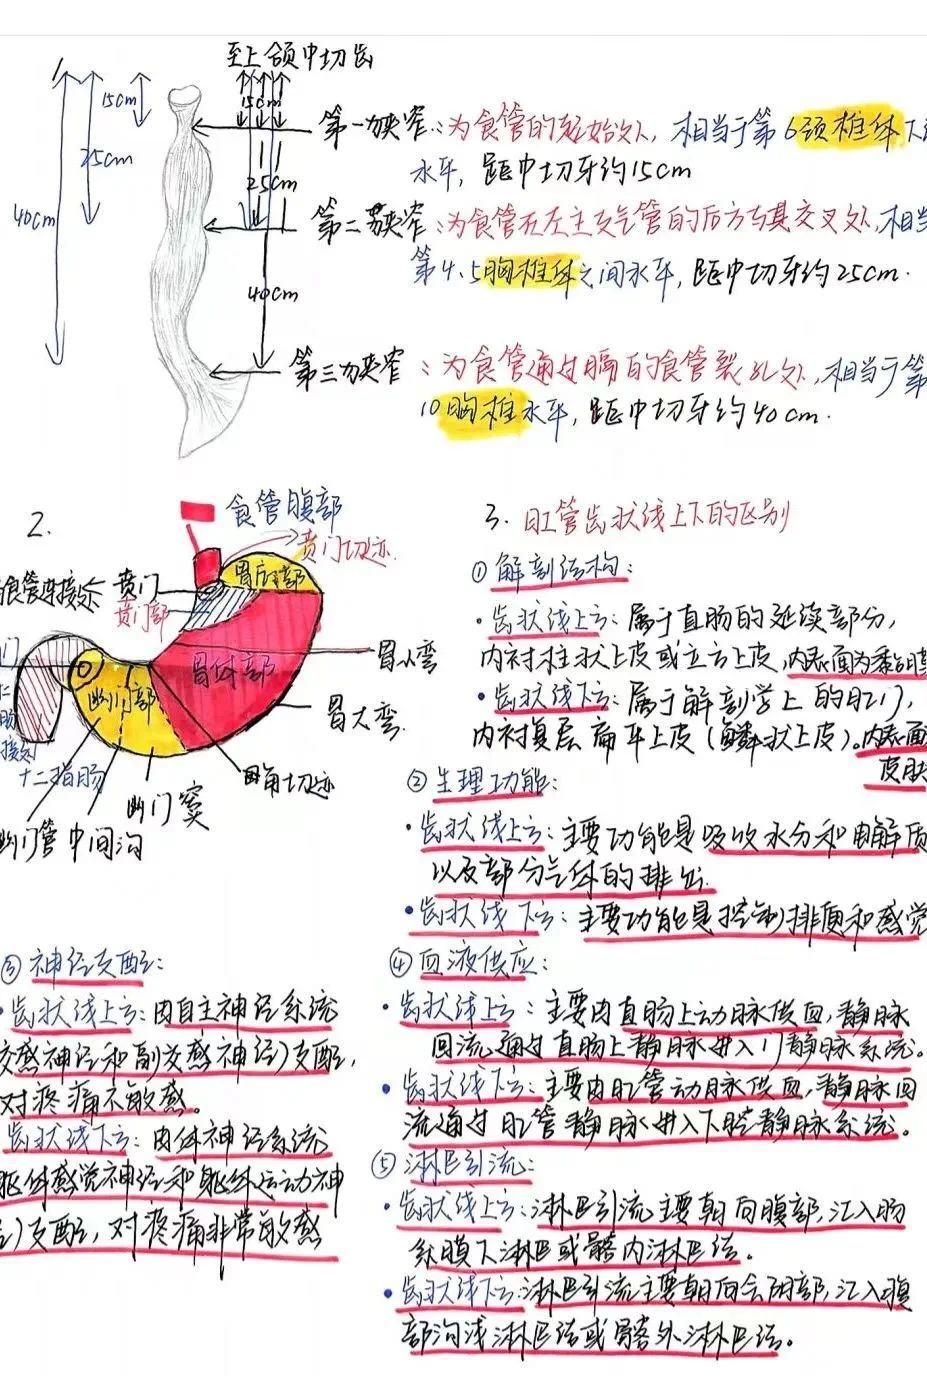 至上颌中切齿
15cm
25cm
40cm
15cm
25cm
40cm
第一狭窄:为食管的起始处,相当于第6颈椎体下
水平,距中切牙约15cm
第二狭窄:为食管在左主支气管的后方与其交叉处,相当
第4、5胸椎体之间水平,距中切牙约25cm.
第三狭窄:为食管通过膈的食管裂孔处,相当于第
10胸椎水平,距中切牙约40cm.
2.
食管腹部
贲门切迹.
食管连接处
贲门
贲门部
胃底部
胃体部
幽门部
胃小弯
胃大弯
角切迹
十二指肠
幽门窦
幽门管
中间沟
3. 肛管齿状线上下的区别
① 解剖结构:
·齿状线上方:属于直肠的延续部分,
内衬柱状上皮或立方上皮,内表面为黏膜
·齿状线下方:属于解剖学上的肛门,
内衬复层扁平上皮(鳞状上皮)。内表面
皮肤
② 生理功能:
·齿状线上方:主要功能是吸收水分和电解质
以及部分气体的排出.
·齿状线下方:主要功能是控制排便和感觉
③ 神经支配:
·齿状线上方:由自主神经系统
交感神经和副交感神经)支配,
对疼痛不敏感。
齿状线下方:由体神经系统
躯体感觉神经和躯体运动神
经)支配,对疼痛非常敏感
④ 血液供应:
·齿状线上方:主要由直肠上动脉供血,静脉
回流通过直肠上静脉进入门静脉系统。
·齿状线下方:主要由肛管动脉供血,静脉回
流通过肛管静脉进入下腔静脉系统。
⑤ 淋巴引流:
·齿状线上方:淋巴引流主要朝向腹部,汇入肠
系膜下淋巴或髂内淋巴结。
·齿状线下方:淋巴引流主要朝向会阴部,汇入腹
部沟浅淋巴结或髂外淋巴结。